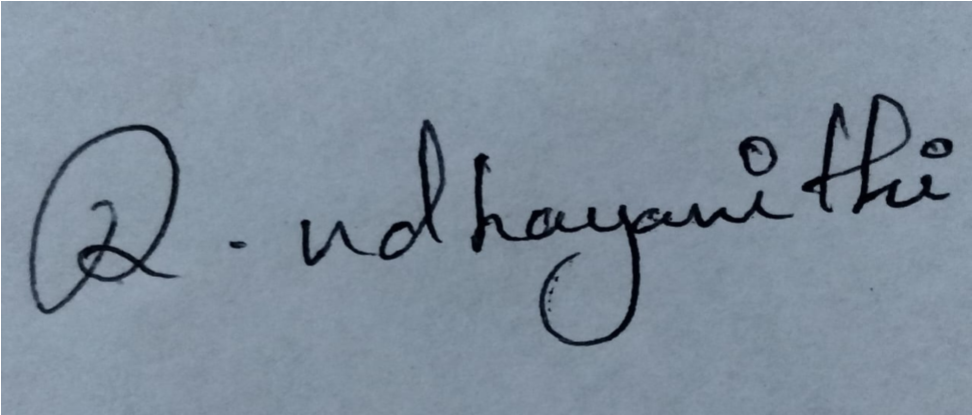 Q. udhayanithi